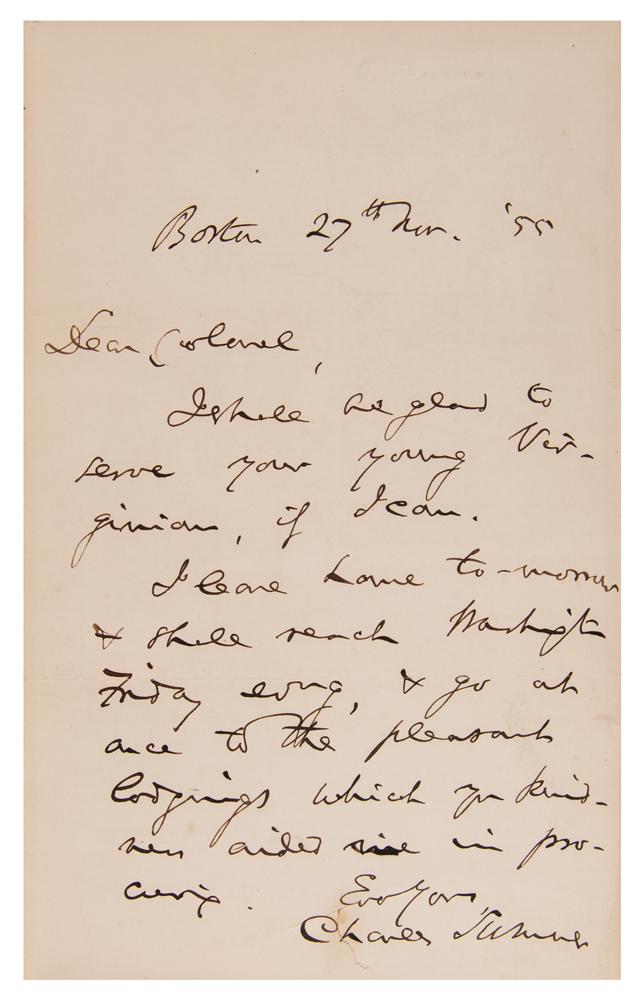 Boston 27th Nov. '55
Dear Colonel,
I shall be glad to
serve your young Vir-
ginian, if I can.
I leave home to-morrow
& shall reach Washingt
Friday evng, & go at
once to the pleasant
lodgings which yr kind-
ness aided me in pro-
curing.
Ever Yours,
Charles Sumner